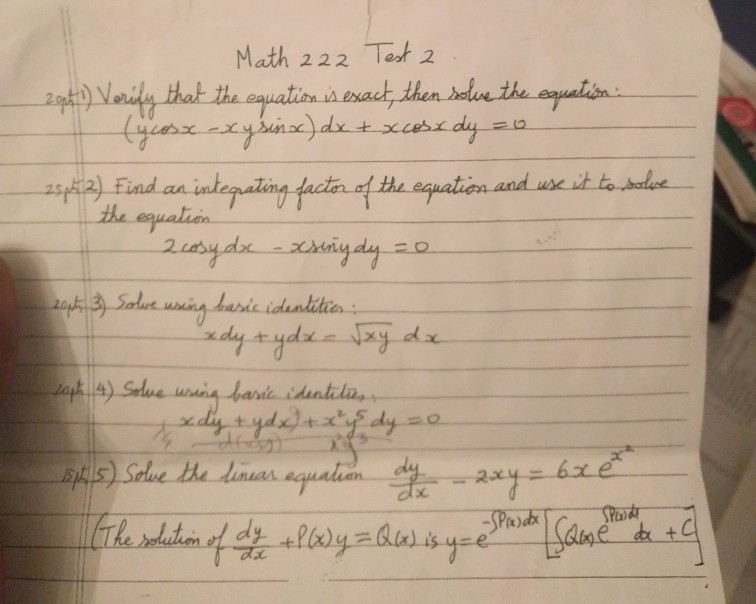 Math 222 Test 2
20pt 1) Verify that the equation is exact, then solve the equation:
(ycosx - xysinx)dx + xcosxdy = 0
25pt 2) Find an integrating factor of the equation and use it to solve
the equation
2cosydx - xsinydy = 0
20pt 3) Solve using basic identities:
xdy + ydx = √xy dx
20pt 4) Solve using basic identities,
xdy + ydx) + x²y⁵dy = 0
d(xy) x²y³
15pt 5) Solve the linear equation dy/dx - 2xy = 6xe^x²
(The solution of dy/dx + P(x)y = Q(x) is y = e^-∫P(x)dx [∫Q(x)e^∫P(x)dx dx + C]